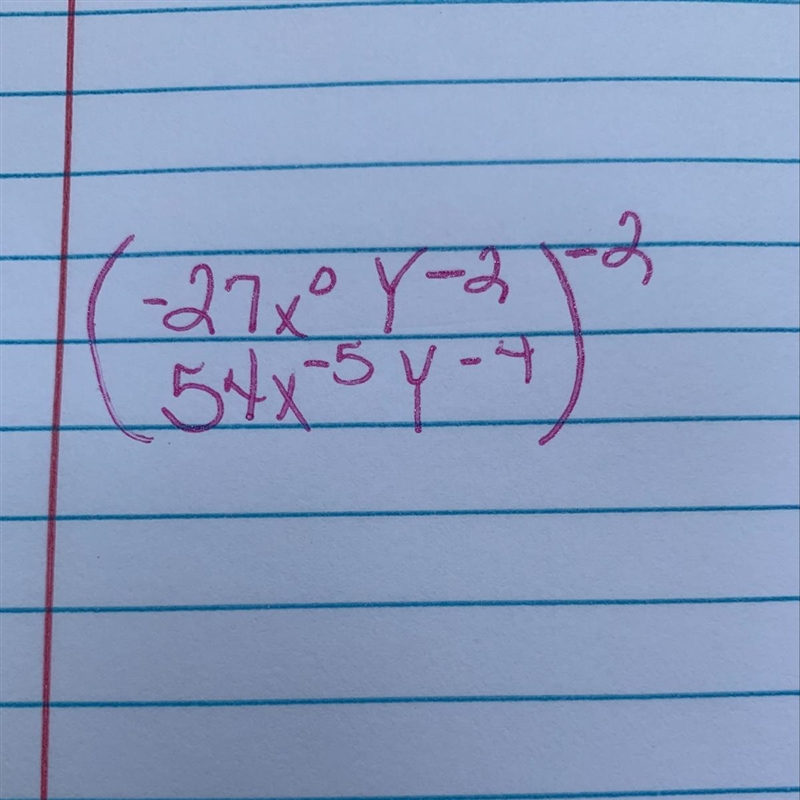 (-27x⁰ y⁻²)⁻²
54x⁻⁵ y⁻⁴